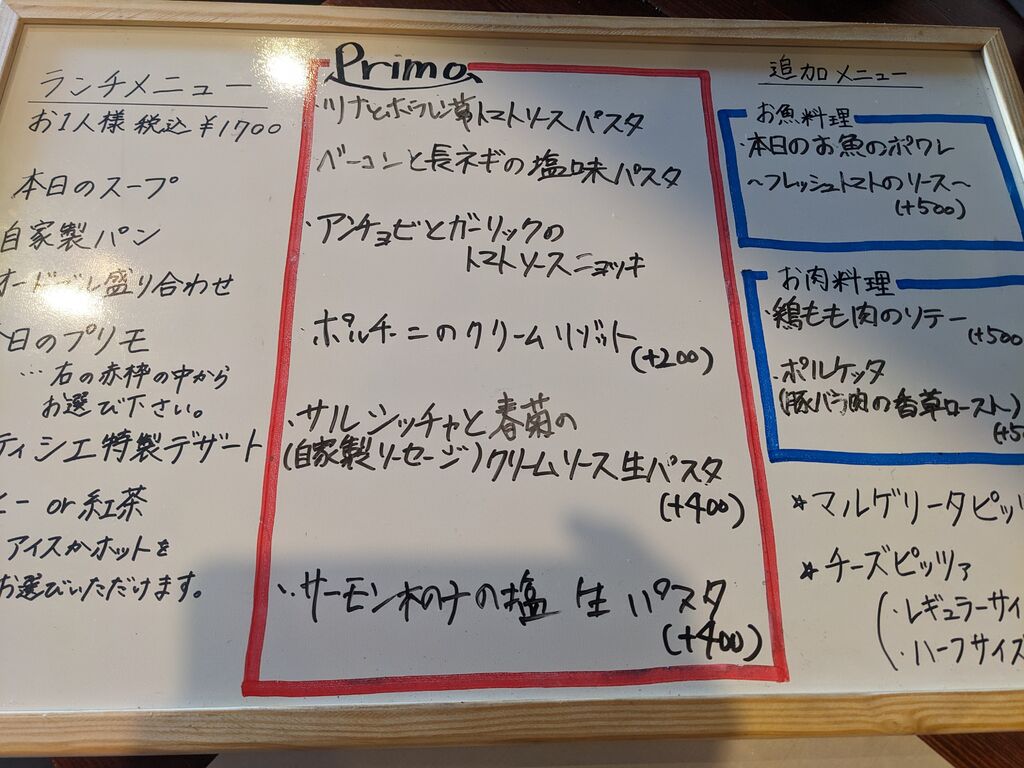 ランチメニュー
お1人様 税込 ¥1700
本日のスープ
自家製パン
オードブル盛り合わせ
日のプリモ
…右の赤枠の中から
お選び下さい。
ティシエ特製デザート
ヒー or 紅茶
アイスかホットを
お選びいただけます。
Primo
・ツナとホウレン草トマトソースパスタ
ベーコンと長ネギの塩味パスタ
アンチョビとガーリックの
トマトソースニョッキ
ポルチーニのクリームリゾット
(+200)
・サルシッチャと春菊の
(自家製ソーセージ)クリームソース生パスタ
(+400)
・サーモンの塩 生パスタ
(+400)
追加メニュー
お魚料理
・本日のお魚のポワレ
〜フレッシュトマトのソース〜
(+500)
お肉料理
・鶏もも肉のソテー
(+500
・ポルケッタ
(豚バラ肉の香草ロースト)
(+5
*マルゲリータピッ
*チーズピッツァ
(・レギュラーサイ
・ハーフサイズ